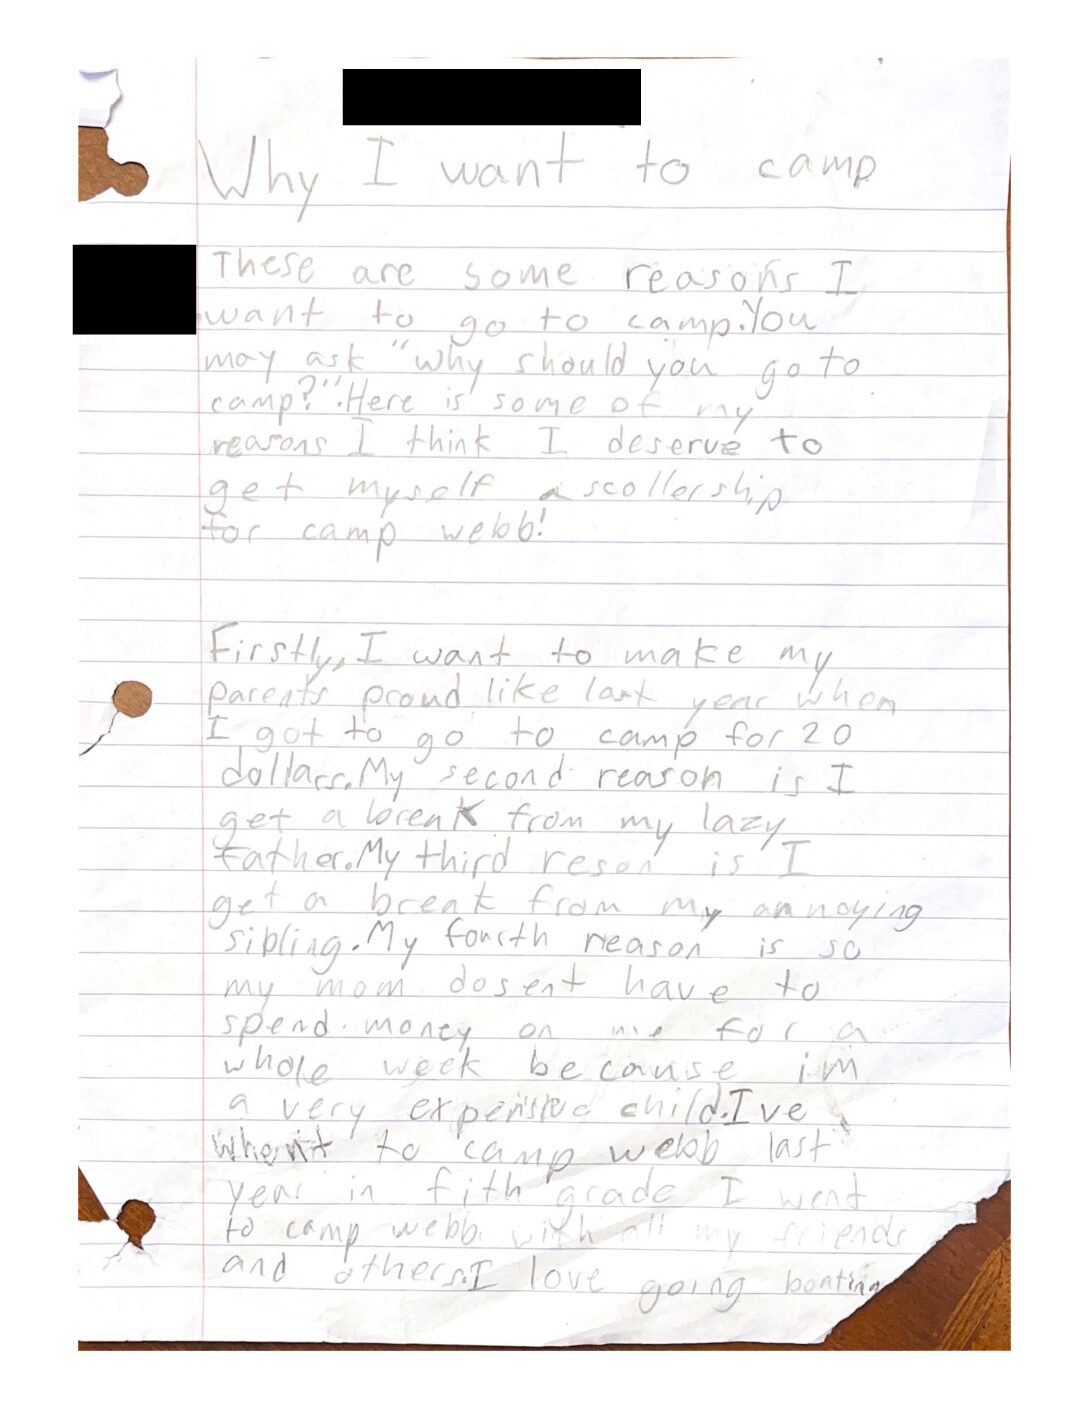 Why I want to camp
These are some reasons I
want to go to camp.You
may ask "why should you go to
camp?".Here is some of my
reasons I think I deserve to
get myself a scollership
for camp webb!
Firstly, I want to make my
parents proud like last year when
I got to go to camp for 20
dollars.My second reason is I
get a break from my lazy
father.My third reson is I
get a break from my annoying
sibling.My fourth reason is so
my mom dosent have to
spend money on me for a
whole week because im
a very expensive child.Ive
whent to camp webb last
year in fith grade I went
to camp webb with all my friends
and others.I love going boating